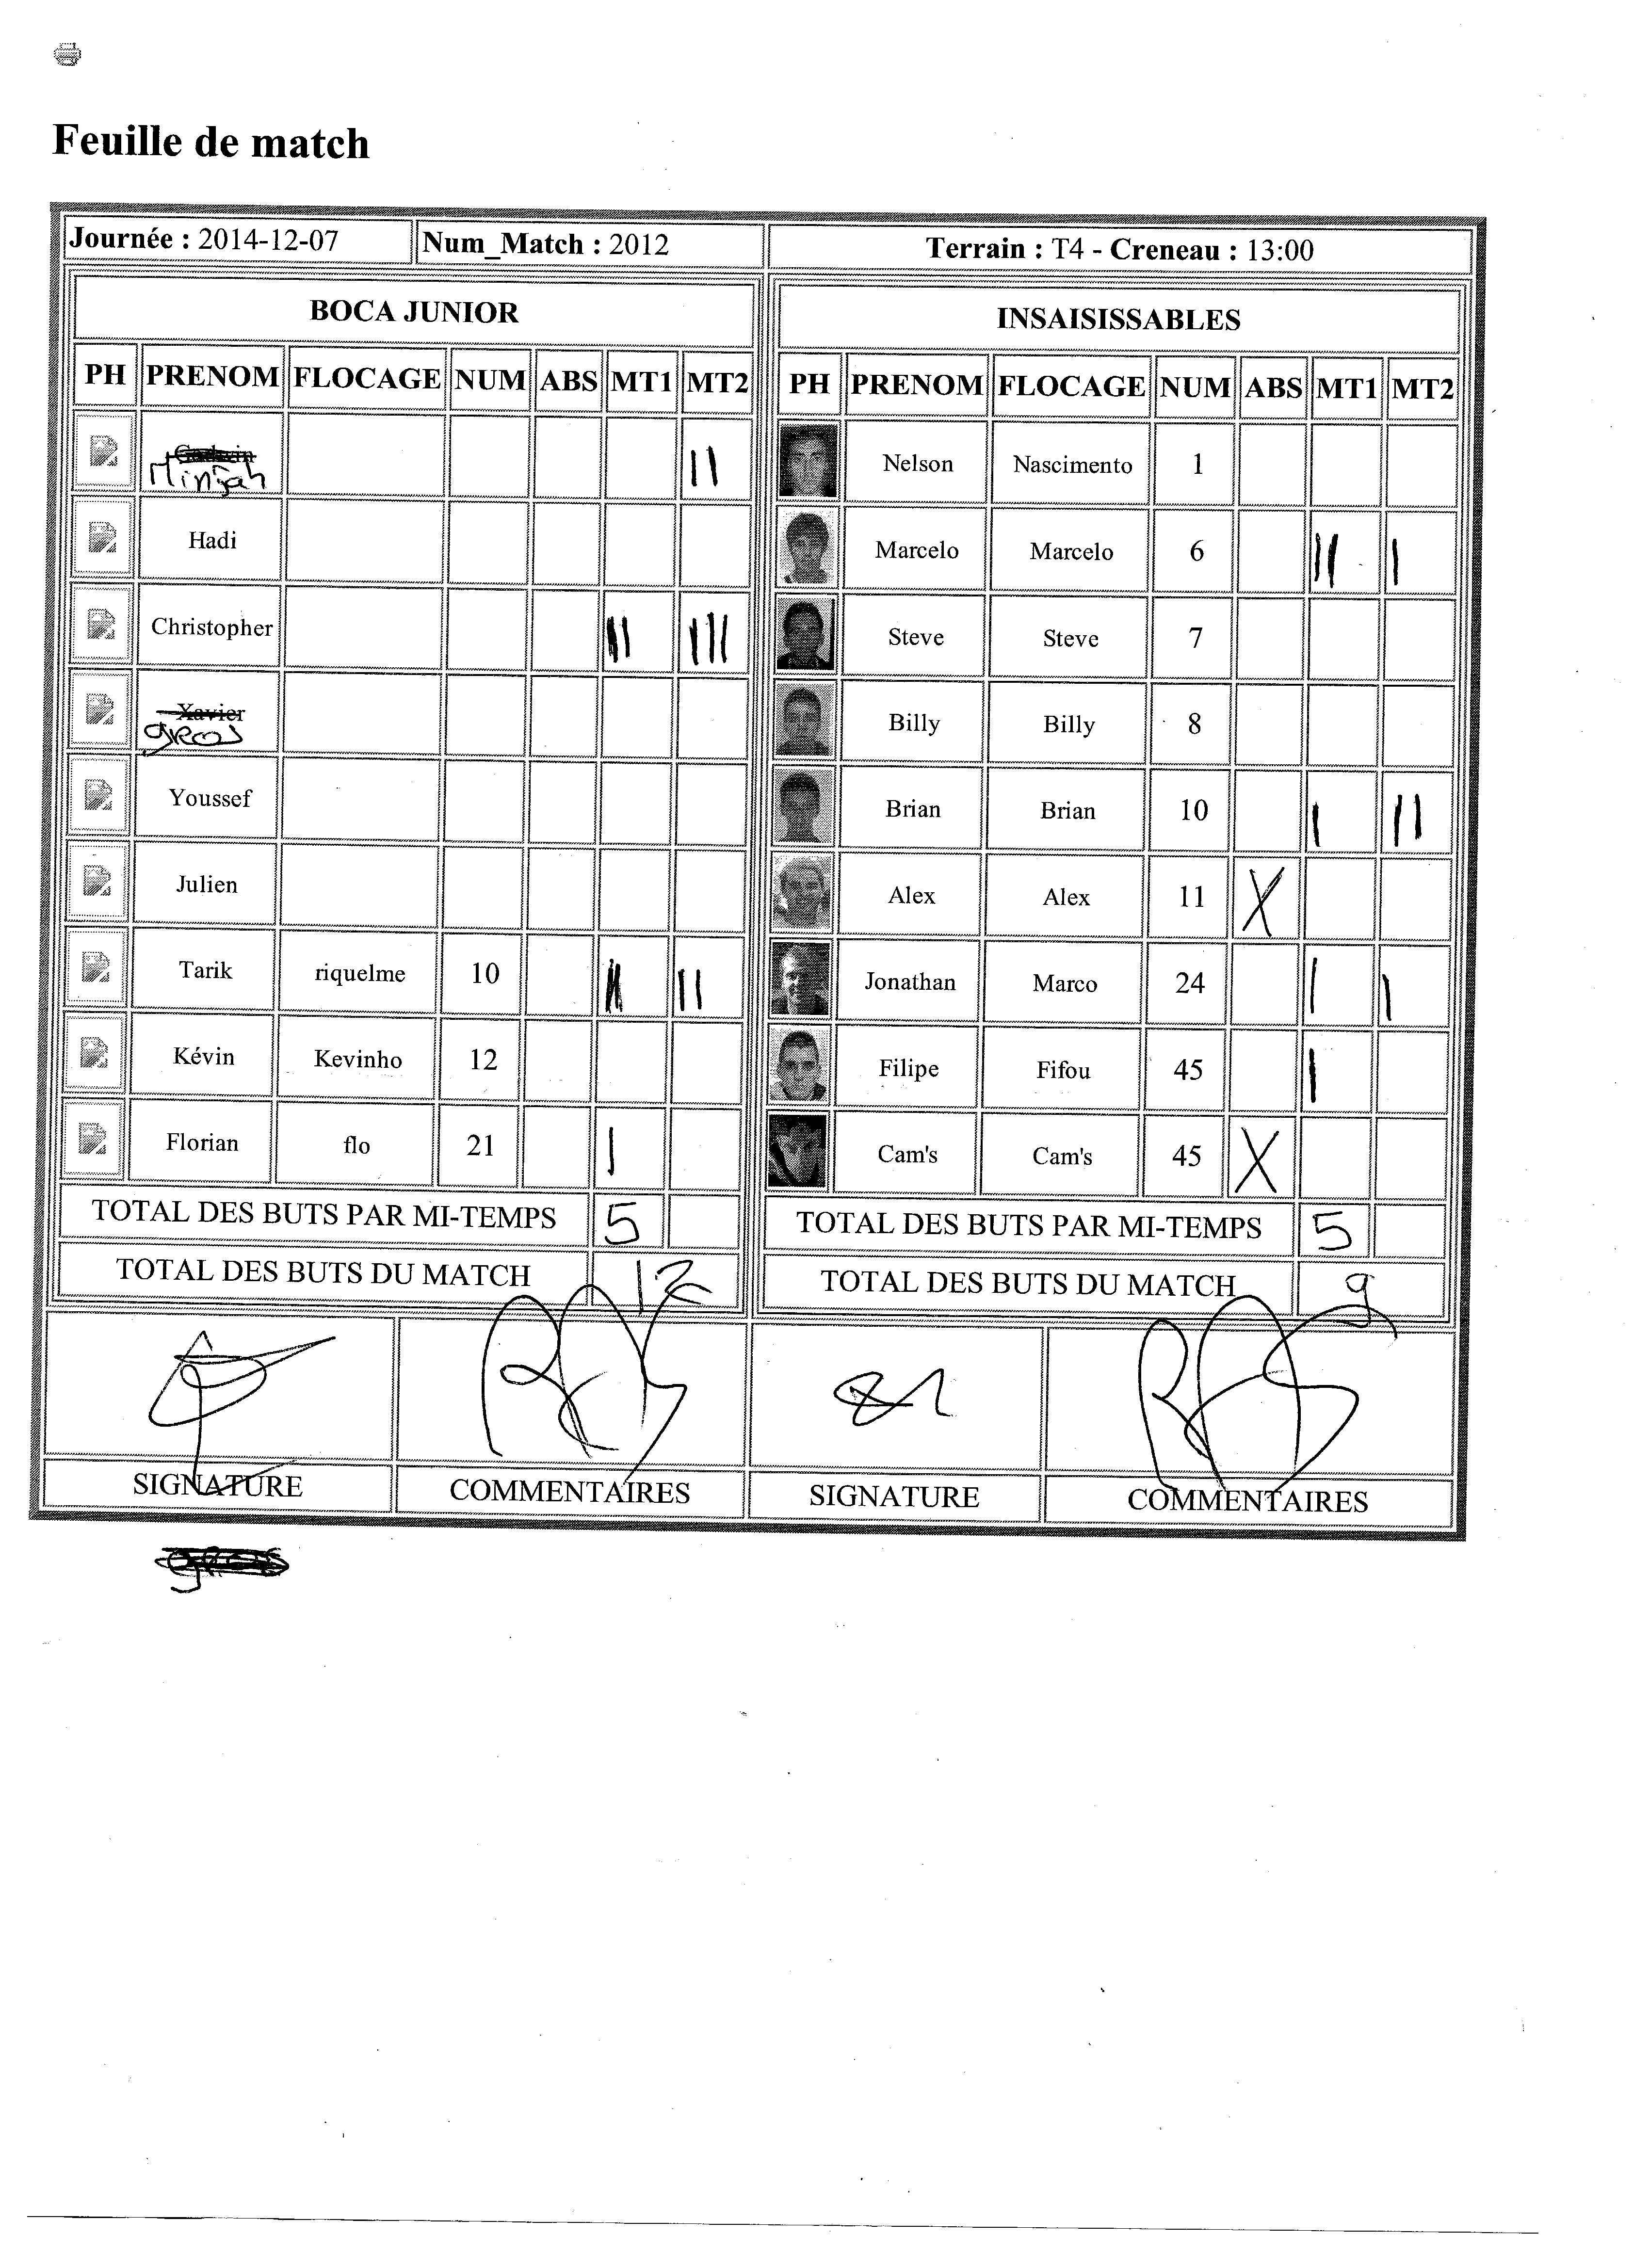 Feuille de match
Journée : 2014-12-07 Num_Match : 2012 Terrain : T4 - Creneau : 13:00
BOCA JUNIOR
PH PRENOM FLOCAGE NUM ABS MT1 MT2
II
Hadi
Christopher II III
Xavier
gros
Youssef
Julien
Tarik riquelme 10 II II
Kévin Kevinho 12
Florian flo 21 I
TOTAL DES BUTS PAR MI-TEMPS 5
TOTAL DES BUTS DU MATCH 12
SIGNATURE COMMENTAIRES
INSAISISSABLES
PH PRENOM FLOCAGE NUM ABS MT1 MT2
Nelson Nascimento 1
Marcelo Marcelo 6 II I
Steve Steve 7
Billy Billy 8
Brian Brian 10 I II
Alex Alex 11 X
Jonathan Marco 24 I I
Filipe Fifou 45 I
Cam's Cam's 45 X
TOTAL DES BUTS PAR MI-TEMPS 5
TOTAL DES BUTS DU MATCH 9
SIGNATURE COMMENTAIRES
gros